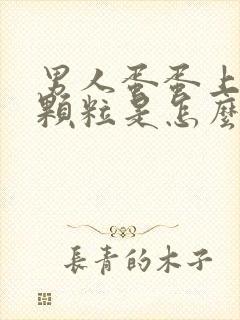 男人蛋蛋上
顆粒是怎麼
長青的木子